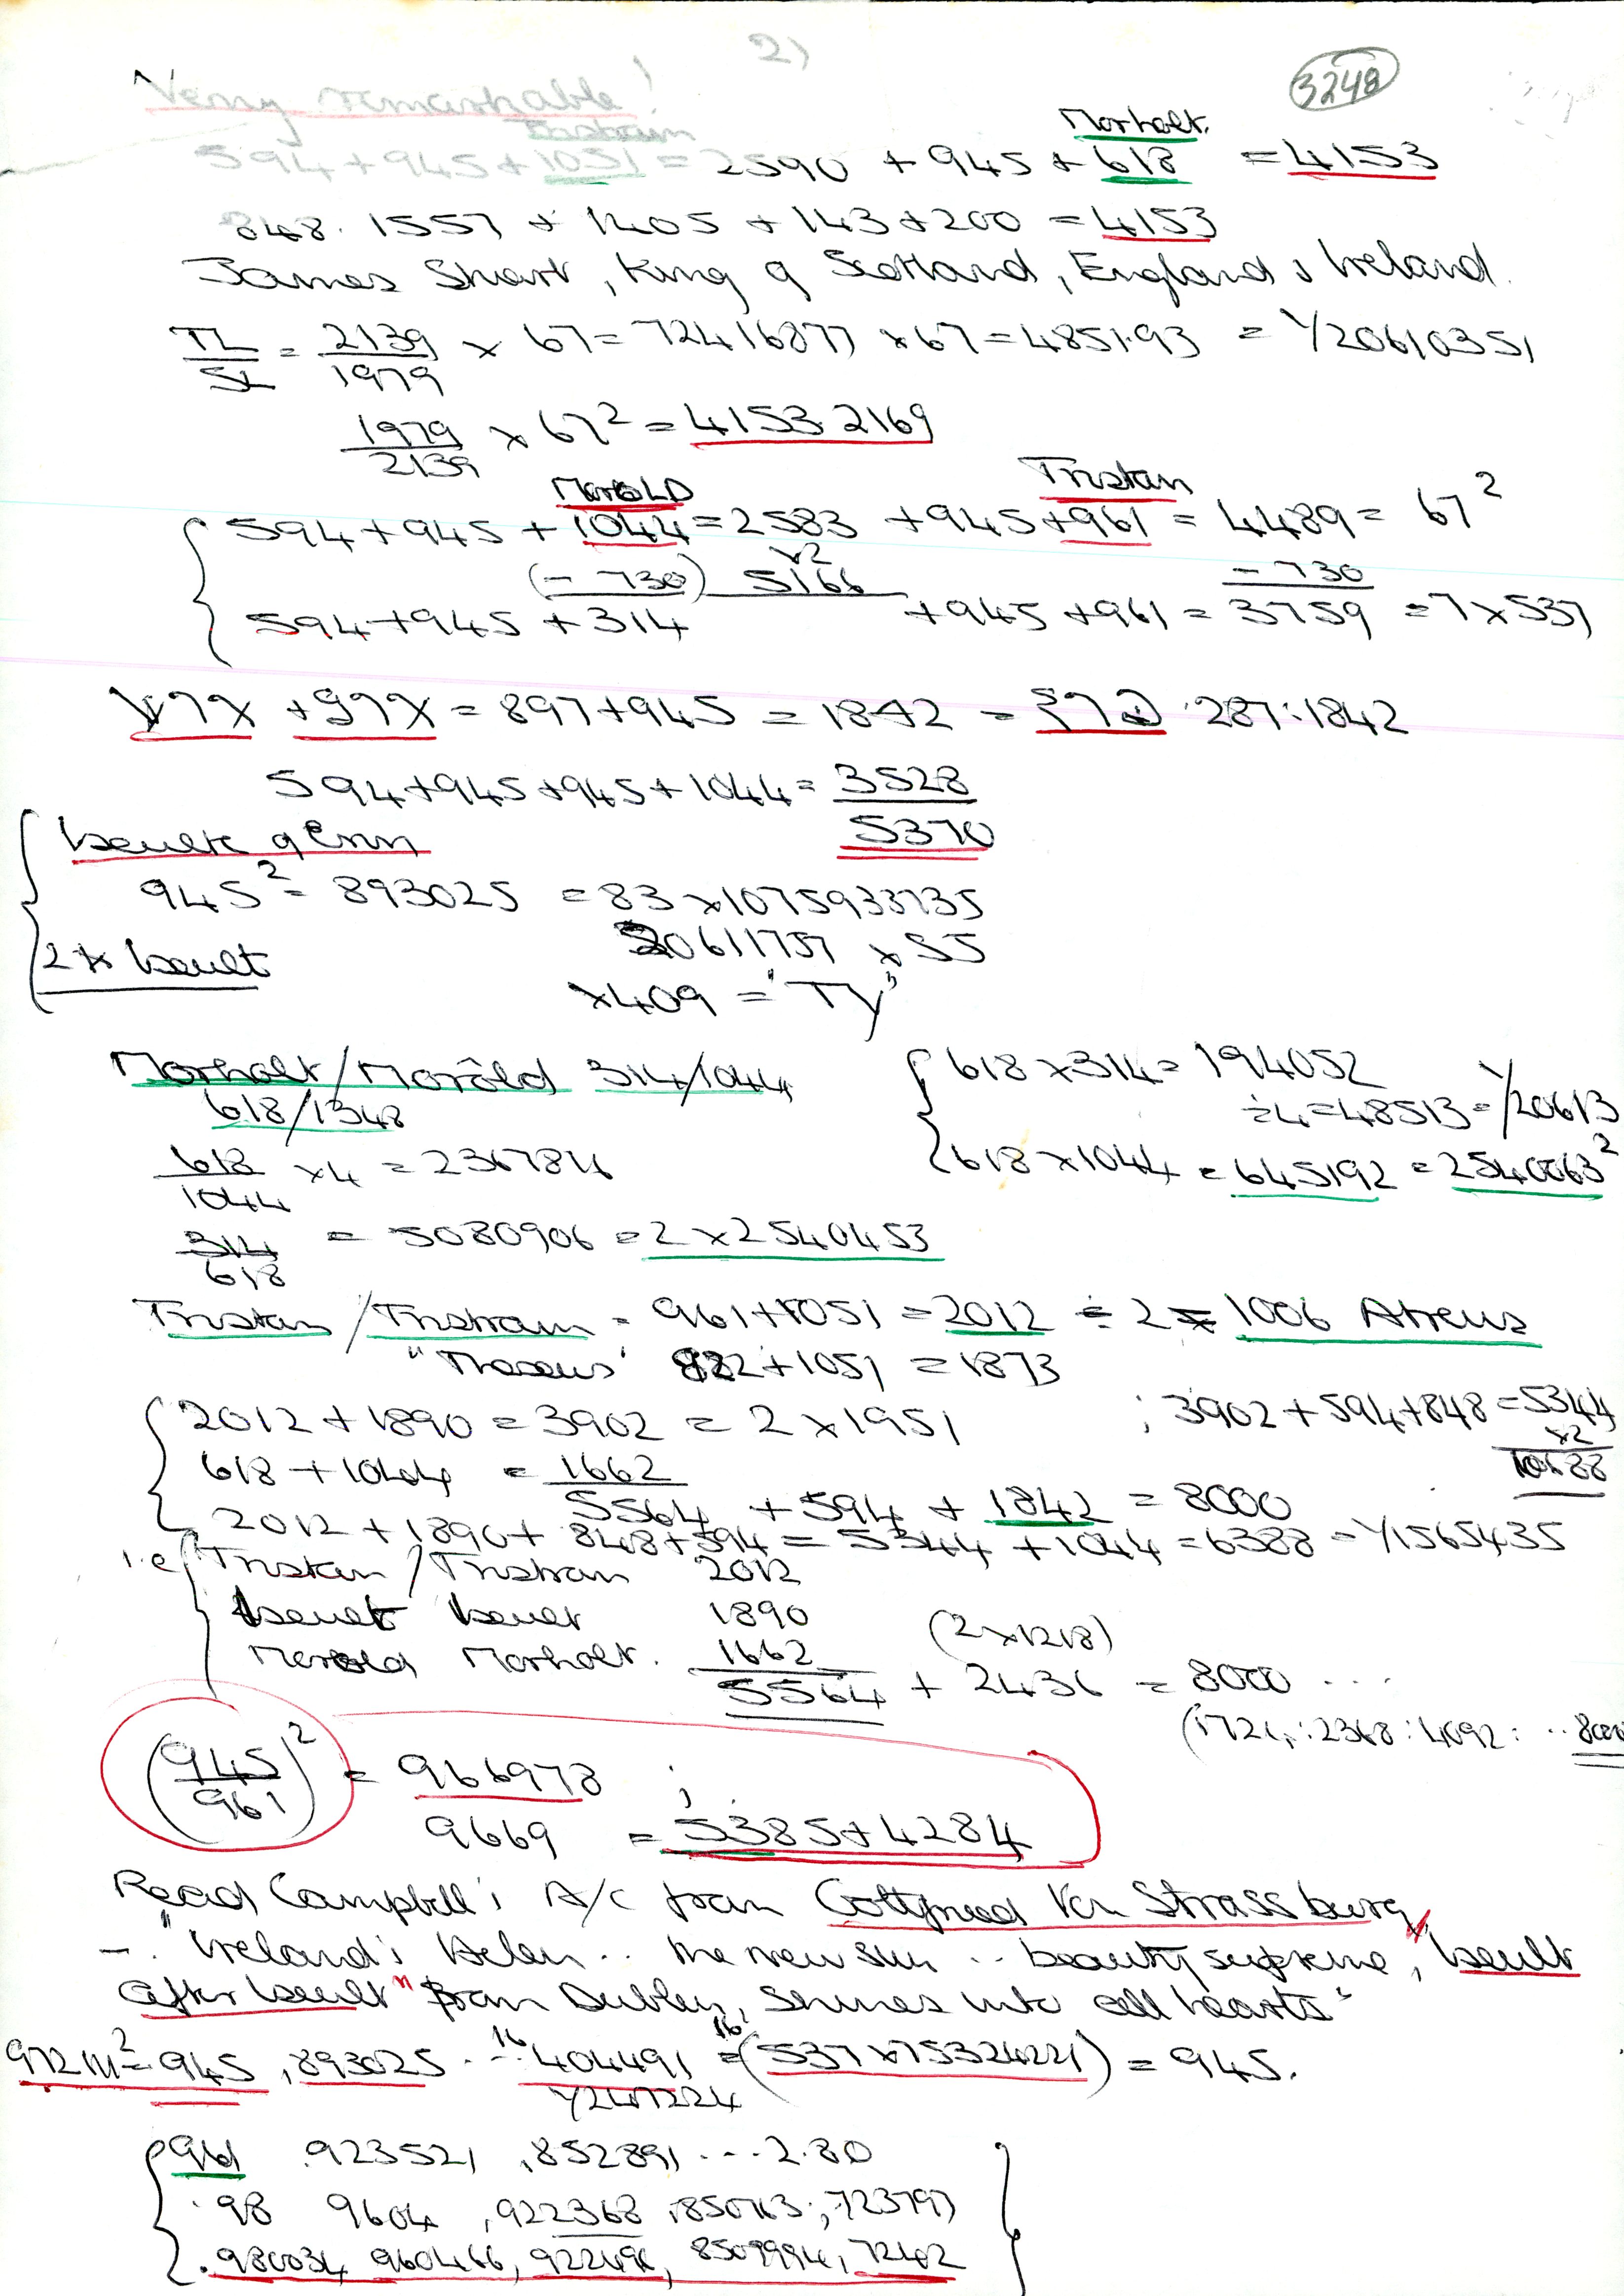 2)
3248
Very remarkable!
Tristram Morholt.
594 + 945 + 1051 = 2590 + 945 + 618 = 4153
848. 1557 + 1405 + 143 + 200 = 4153
James Stuart, King of Scotland, England & Ireland.
TL/SL = 2139/1979 × 67 = 72416877 × 67 = 4851.93 = 1/20610351
1979/2139 × 67² = 4153.2169
MorolD Tristan
594 + 945 + 1044 = 2583 + 945 + 961 = 4489 = 67²
(- 730) ×2 5166 - 730
594 + 945 + 314 + 945 + 961 = 3759 = 7 × 537
= 897 + 945 = 1842 = .287:1842
594 + 945 + 945 + 1044 = 3528
Iseult of Erin 5370
945² = 893025 = 83 × 1075933735
20611757 × 55
2 × Iseult
×409 = "TY"
Morholt/Morôld 314/1044
618/1348
618 × 314 = 194052
÷4 = 48513 = 1/20613
618/1044 × 4 = 2367816
618 × 1044 = 645192 = 2540063²
314/618 = 5080906 = 2 × 2540453
Tristan/Tristram = 961 + 1051 = 2012 ÷ 2 = 1006 Atreus
"Theseus" 822 + 1051 = 1873
2012 + 1890 = 3902 = 2 × 1951 ; 3902 + 594 + 848 = 5344
×2
10688
618 + 1044 = 1662
5564 + 594 + 1842 = 8000
2012 + 1890 + 848 + 594 = 5344 + 1044 = 6388 = 1/1565435
i.e. Tristan/Tristram 2012
Iseult Iseult 1890
Morold Morholt. 1662 (2×1218)
5564 + 2436 = 8000 ...
(1724:2368:4092: ..8000
(945/961)² = 966978 ;
9669 = 5385 + 4284
Read Campbell's A/C from Gottfried Von Strassburg
- "Ireland's Helen .. the new sun .. beauty supreme, Iseult
after Iseult" from Dublin, shines into all hearts"
972111² = 945, 893025 ... 16 404491 = 16 (537 × 75324221) = 945.
1/247224
961 .923521 .852891 ... 2.80
.98 9604 .922368 .850763; 723797
.980034 960466, 922496, 8509994, 72422